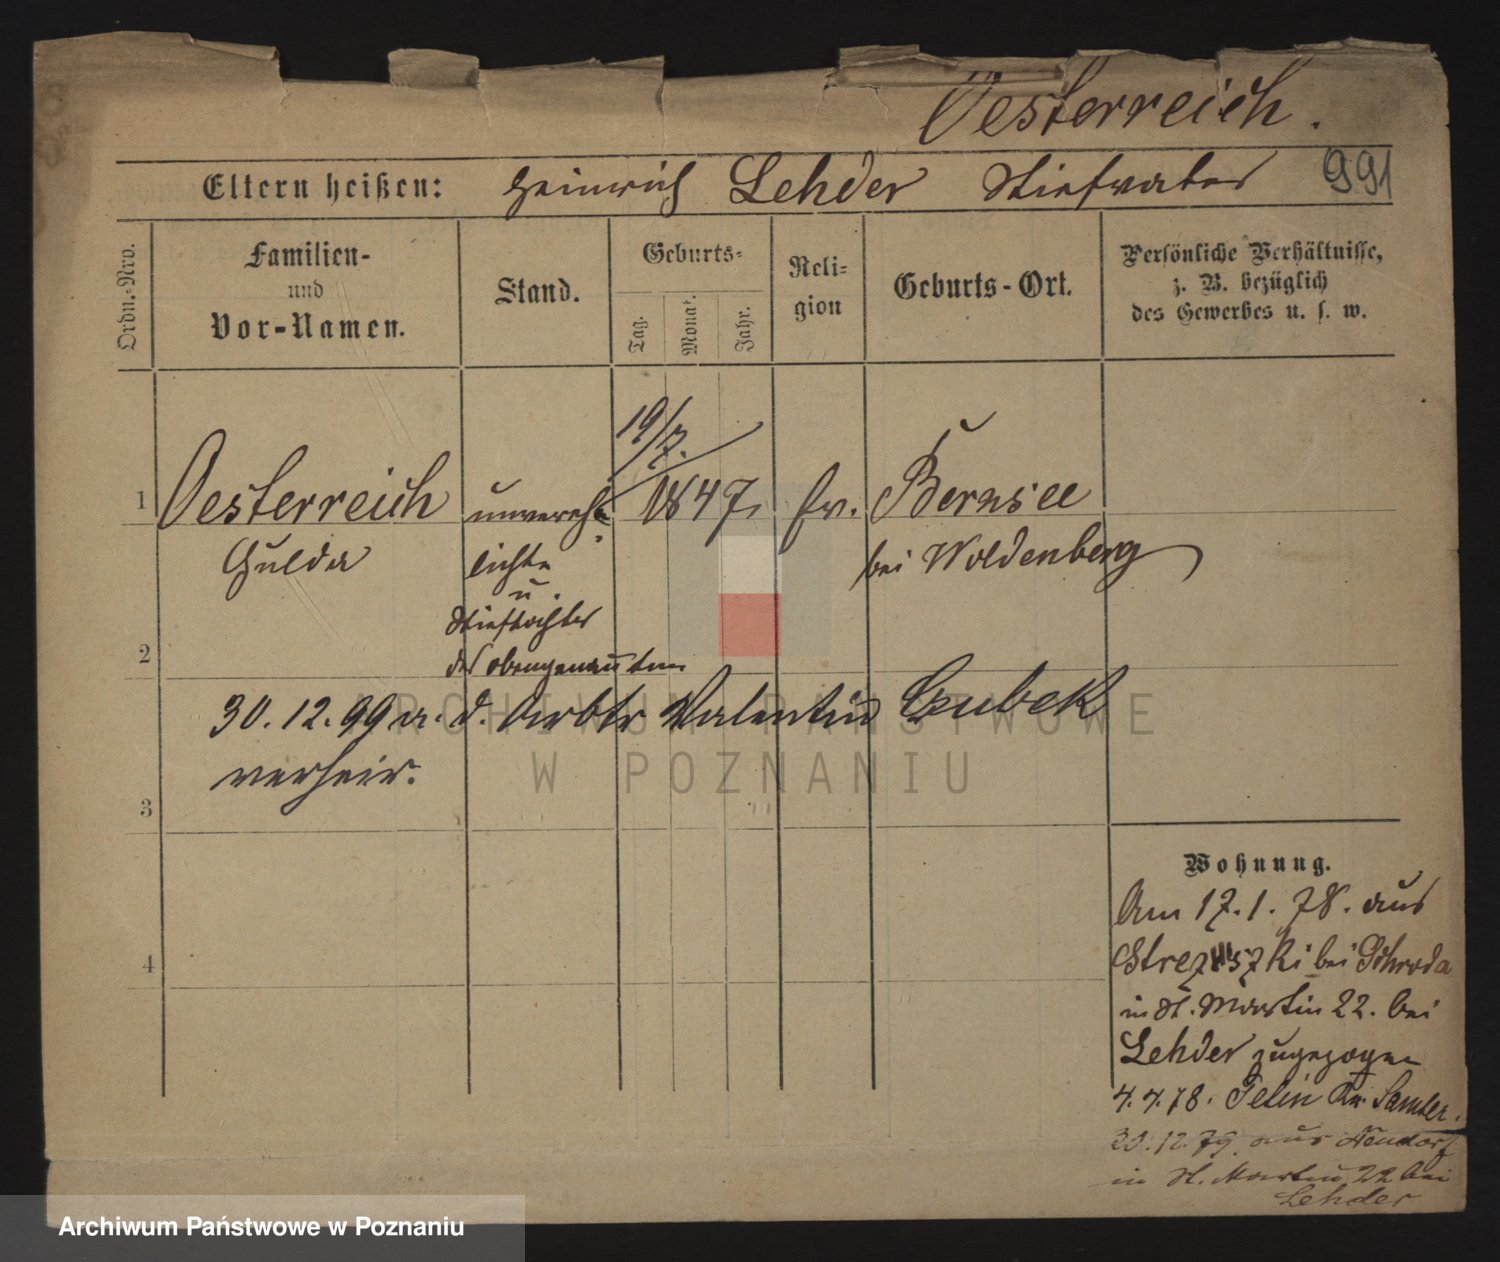 Oesterreich.
Eltern heißen: Heinrich Lehder Stiefvater 991
Ordn.-Nro.
Familien-
und
Vor-Namen.
Stand.
Geburts-
Tag. Monat. Jahr.
Reli-
gion
Geburts-Ort.
Persönliche Verhältnisse,
z. B. bezüglich
des Gewerbes u. s. w.
19/7.
1 Oesterreich unverehe- 1847, ev. Bernsee
Hulda lichte bei Woldenberg
u.
Stieftochter
2 des obengenannten
30.12.99 a. d. Arbtr Valentin Gubek
verheir.
3
4
Wohnung.
Am 17.1.78. aus
bei Schroda
in St. Martin 22. bei
Lehder zugezogen
4.4.78. Kr. Samter.
30.12.79. aus Neudorf
in St. Martin 22 bei
Lehder
ARCHIWUM PAŃSTWOWE
W POZNANIU
Archiwum Państwowe w Poznaniu